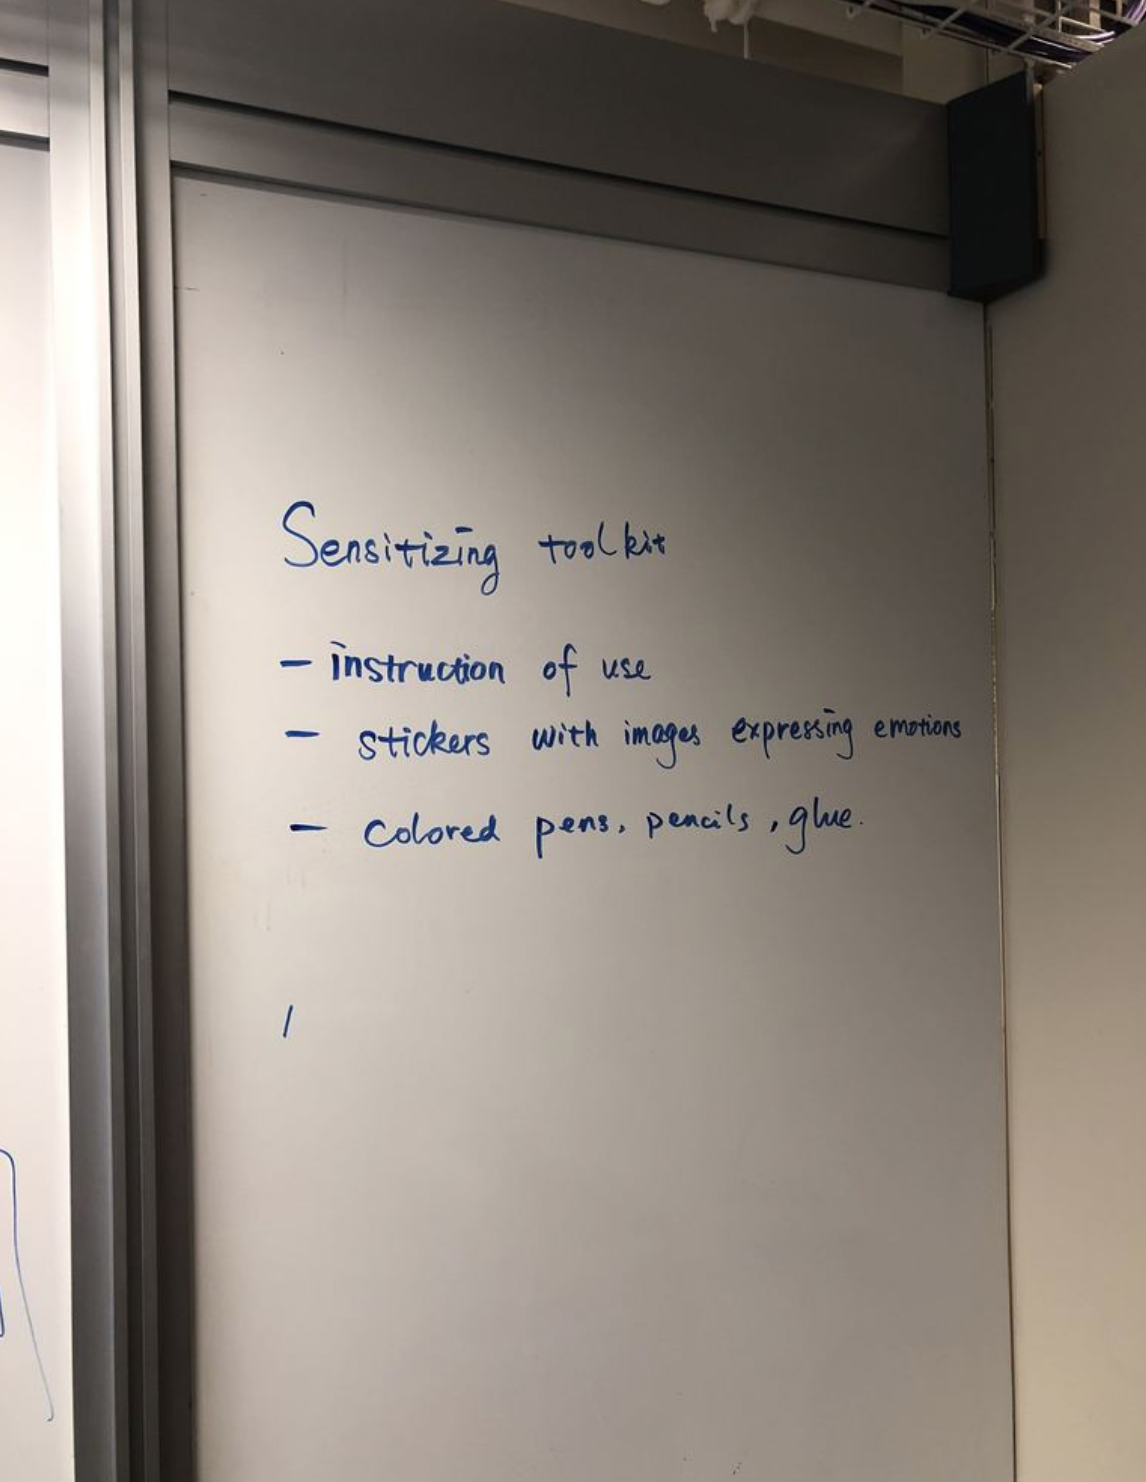 Sensitizing toolkit
- instruction of use
- stickers with images expressing emotions
- colored pens, pencils, glue.
/